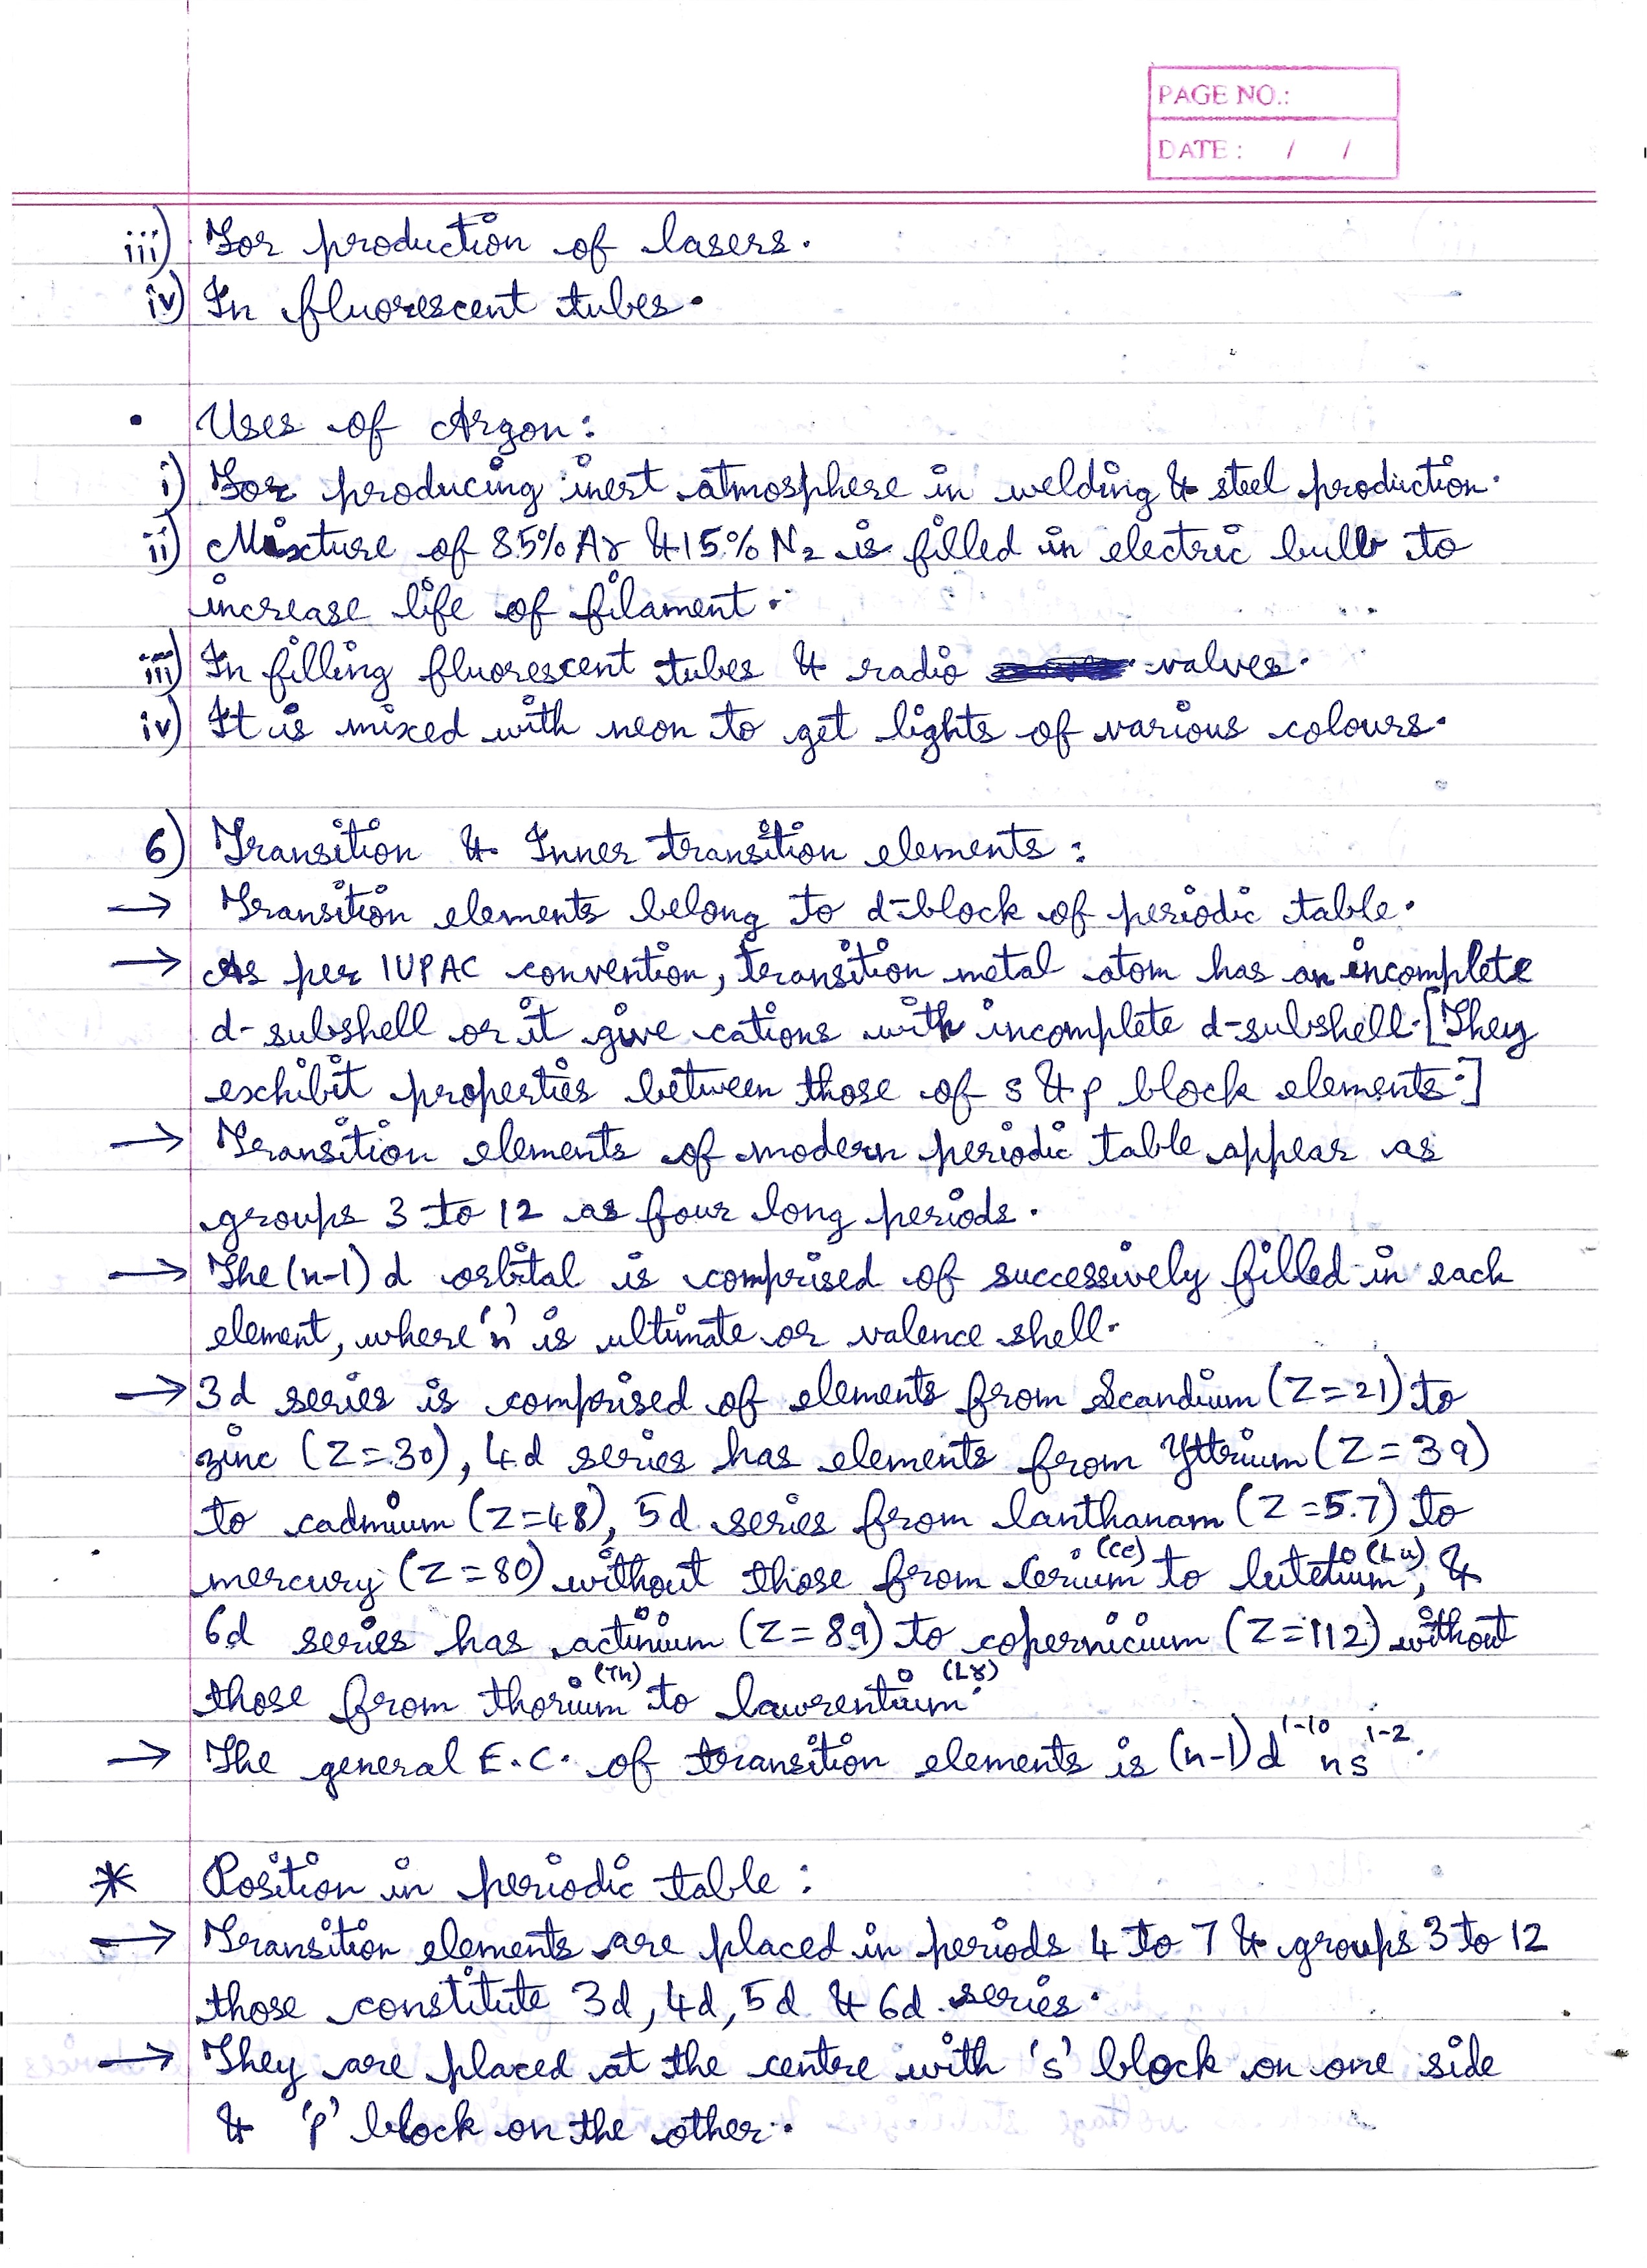 PAGE NO.:
DATE : / /
iii) For production of lasers.
iv) In fluorescent tubes.
• Uses of Argon:
i) For producing inert atmosphere in welding & steel production.
ii) Mixture of 85% Ar & 15% N₂ is filled in electric bulb to
increase life of filament.
iii) In filling fluorescent tubes & radio valves.
iv) It is mixed with neon to get lights of various colours.
6) Transition & Inner transition elements:
→ Transition elements belong to d-block of periodic table.
→ As per IUPAC convention, transition metal atom has an incomplete
d-subshell or it give cations with incomplete d-subshell. [They
exhibit properties between those of s & p block elements.]
→ Transition elements of modern periodic table appear as
groups 3 to 12 as four long periods.
→ The (n-1) d orbital is comprised of successively filled in each
element, where 'n' is ultimate or valence shell.
→ 3d series is comprised of elements from Scandium (Z=21) to
zinc (Z=30), 4d series has elements from Yttrium (Z=39)
to cadmium (Z=48), 5d series from lanthanam (Z=57) to
mercury (Z=80) without those from Cerium (Ce) to lutetium (Lu), &
6d series has actinium (Z=89) to copernicium (Z=112) without
those from thorium (Th) to lawrentium (Lr).
→ The general E.C. of transition elements is (n-1)d¹⁻¹⁰ ns¹⁻².
* Position in periodic table:
→ Transition elements are placed in periods 4 to 7 & groups 3 to 12
those constitute 3d, 4d, 5d & 6d series.
→ They are placed at the centre with 's' block on one side
& 'p' block on the other.